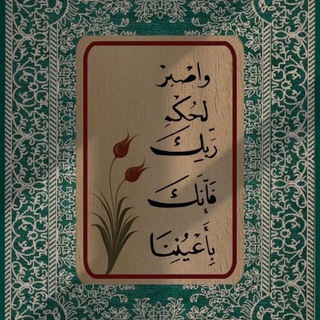 واصْبِرْ
لِحُكْمِ
رَبِّكَ
فَإِنَّكَ
بِأَعْيُنِنَا